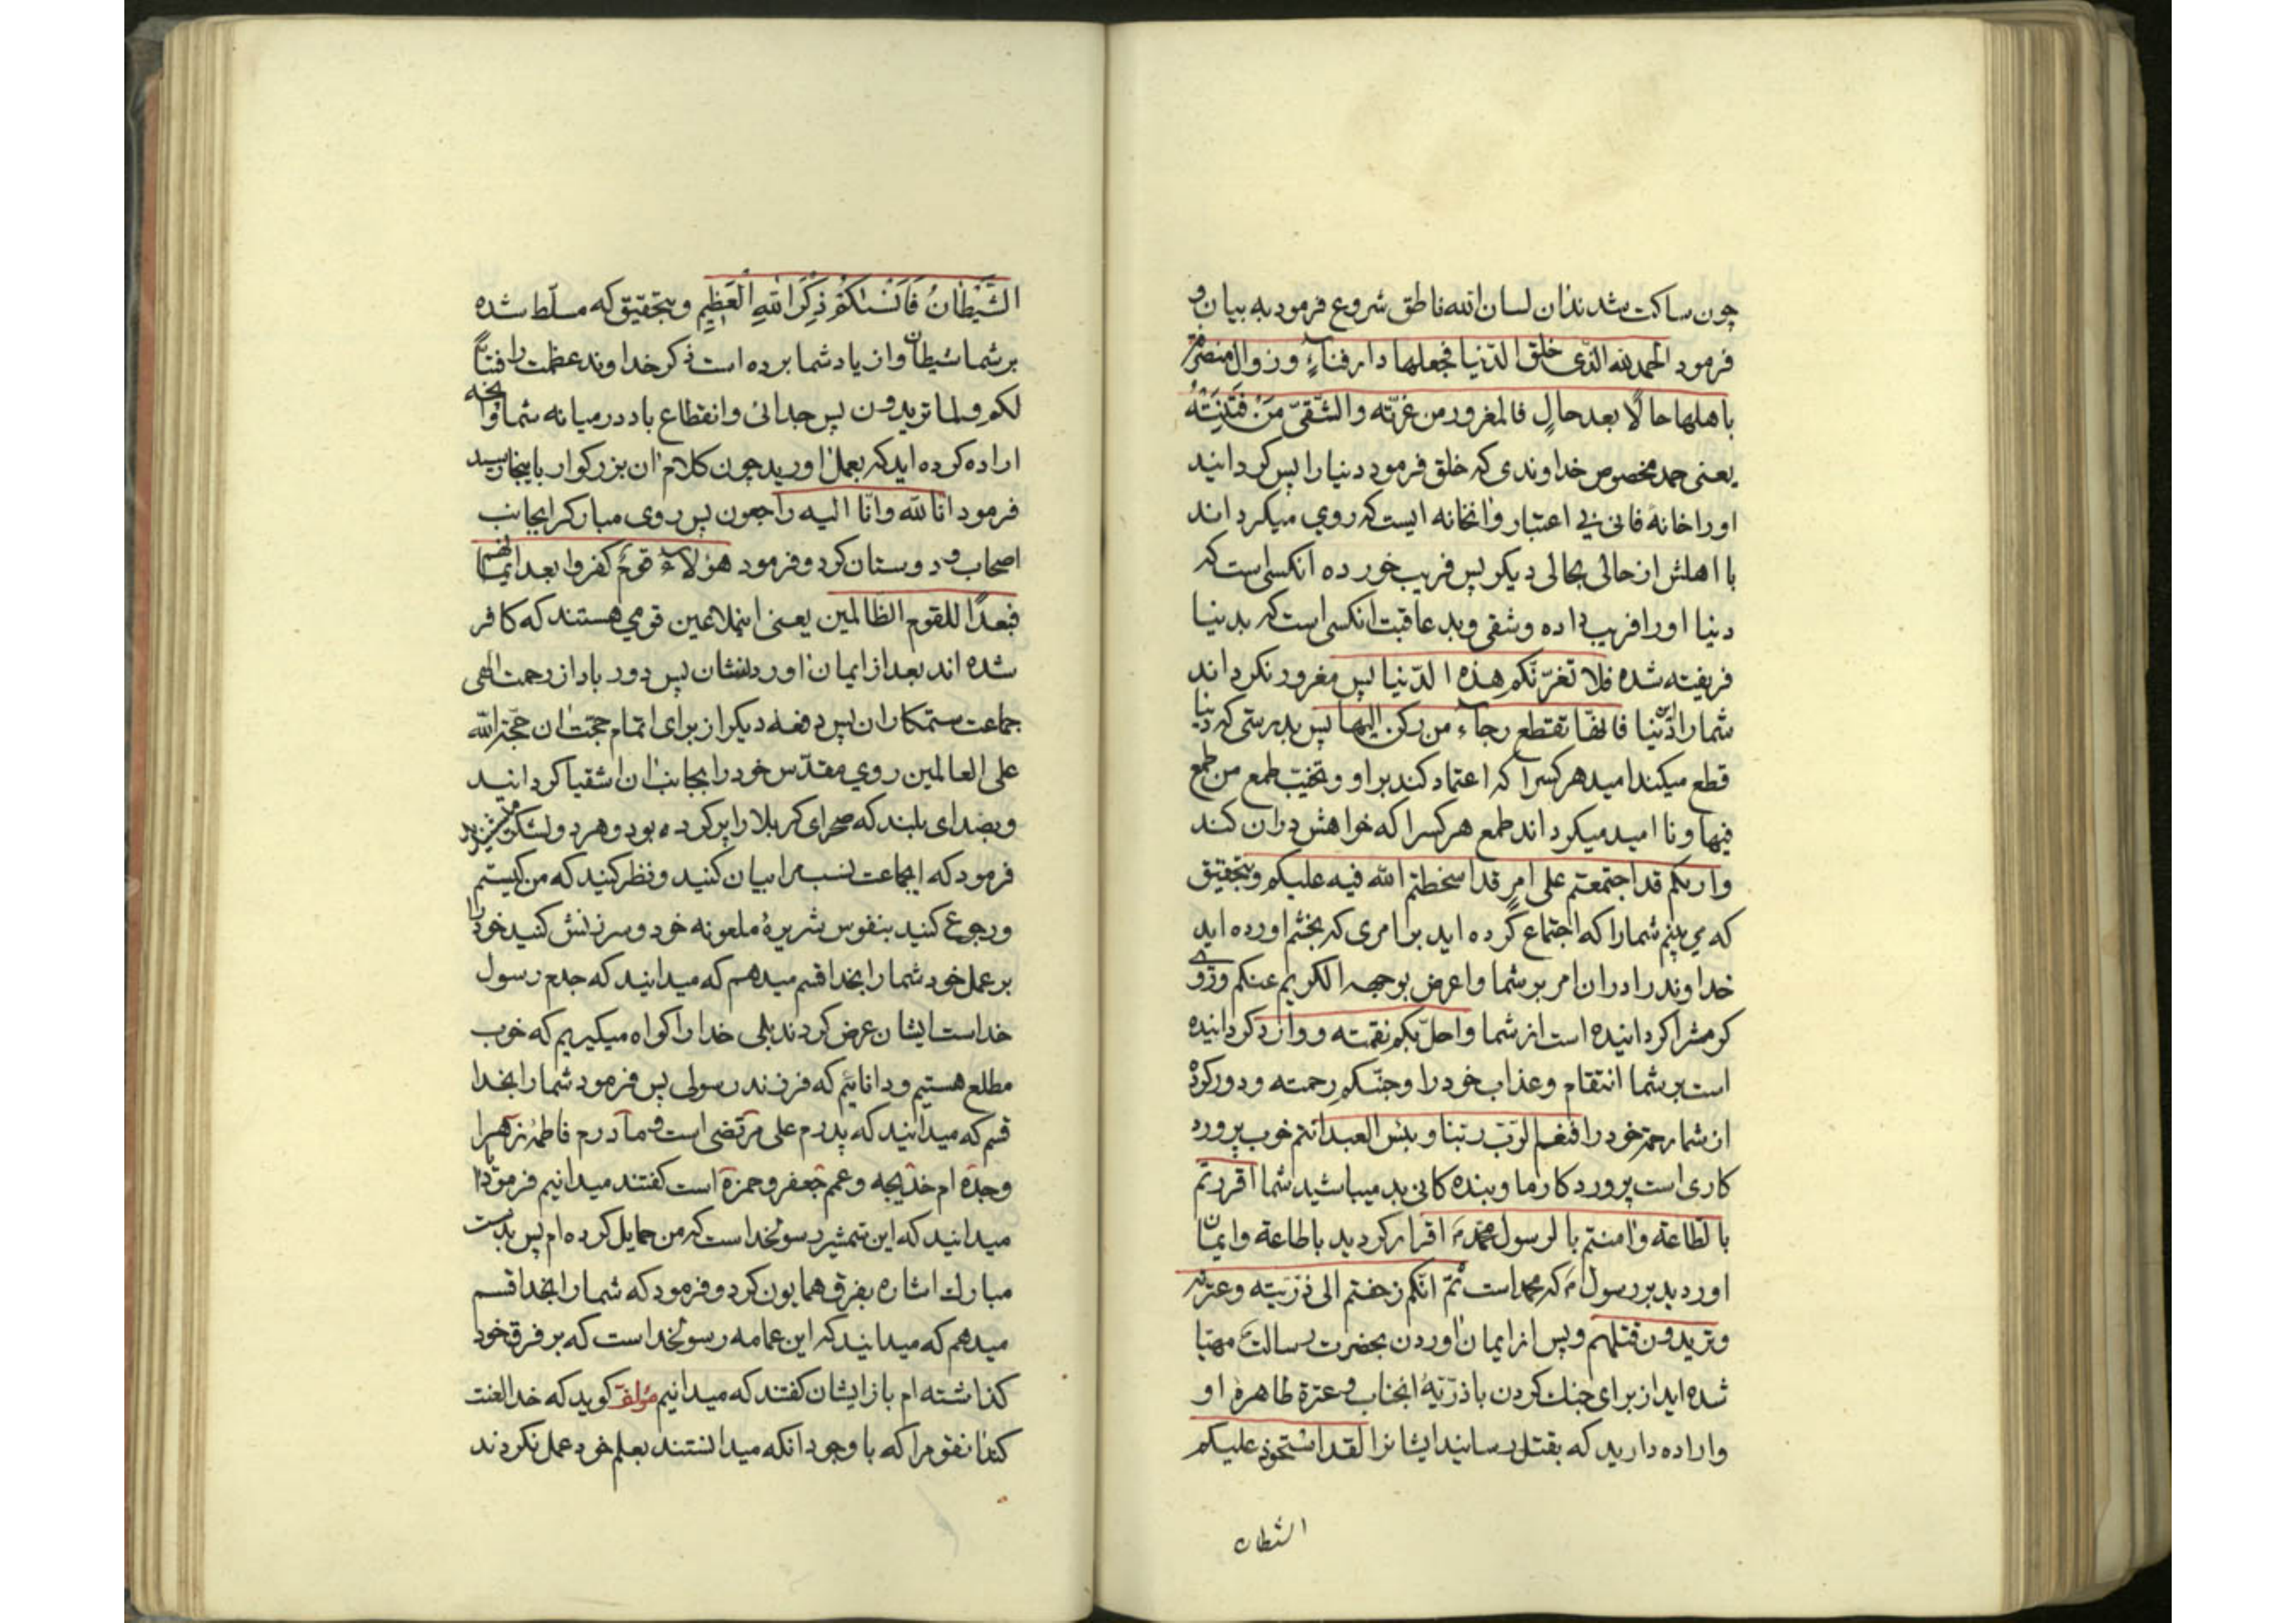 چون ساکت شدند ان لسان الله ناطق شروع فرمود به بیان و
فرمود الحمد لله الذی خلق الدنیا فجعلها دار فناءٍ و زوال متصرّفة
باهلها حالًا بعد حالٍ فالمغرور من غرّته والشّقیّ مَنْ فَتَنَتْهُ
یعنی حمد مخصوص خداوندی که خلق فرمود دنیا را پس کردانید
اورا خانهٔ فانی بی اعتبار وانخانه ایست که روی میکرداند
با اهلش از حالی بحالی دیکر پس فریب خورده انکسی است که
دنیا اورا فریب داده و شقی و بد عاقبت انکسی است که بدنیا
فریفته شده فلا تغرّنّکم هذه الدّنیا پس مغرور نکرداند
شمارا این دنیا فانها تقطع رجاء من رکن الیها پس بدرستی که دنیا
قطع میکند امید هر کسرا که اعتماد کند بر او و تخیّب طمع من طمع
فیها و نا امید میکرداند طمع هر کسرا که خواهش دران کند
واریکم قد اجتمعتم علی امرٍ قد اسخطتم الله فیه علیکم و بتحقیق
که می بینم شمارا که اجتماع کرده اید بر امری که بخشم اورده اید
خداوند را دران امر بر شما واعرض بوجهه الکریم عنکم و روی
کرمشرا کردانیده است از شما واحلّ بکم نقمته و وارد کردانیده
است بر شما انتقام و عذاب خود را وجنّبکم رحمته و دور کرده
از شما رحمة خود را فنعم الرّبّ ربّنا و بئس العبد انتم خوب پرورد
کاری است پروردکار ما و بنده کانی بد میباشید شما اقررتم
بالطاعة وامنتم بالرسول محمّدؐ اقرار کردید باطاعة وایمان
اوردید بر رسولؐ که محمد است ثمّ انکم زحفتم الی ذرّیّته وعترته
وتریدون قتلهم و پس از ایمان اوردن بحضرت رسالتؐ مهیّا
شده اید از برای جنک کردن با ذرّیّهٔ انجناب و عترة طاهرهٔ او
واراده دارید که بقتل رسانید ایشانرا لقد استحوذ علیکم
الشیطان
الشَّیْطانُ فَاَنْسٰکُمْ ذِکْرَ اللّٰهِ الْعَظِیْمِ و بتحقیق که مسلّط شده
بر شما شیطان واز یاد شما برده است ذکر خداوند عظمت را فتبًّا
لکم ولما تریدون پس جدائی وانقطاع باد در میانه شما وانچه
اراده کرده اید که بعمل اورید چون کلام ان بزرکوار باینجا رسید
فرمود انا لله وانّا الیه راجعون پس روی مبارکرا بجانب
اصحاب و دوستان کرد و فرمود هؤلاء قومٌ کفروا بعد ایمانهم
فبعدًا للقوم الظالمین یعنی اینملاعین قومی هستند که کافر
شده اند بعد از ایمان اوردنشان پس دور باد از رحمت الهی
جماعت ستمکاران پس دفعه دیکر از برای اتمام حجّت ان حجّة الله
علی العالمین روی مقدّس خود را بجانب ان اشقیا کردانید
و بصدای بلند که صحرای کربلا را پر کرده بود و هر دو لشکر میشنیدند
فرمود که ایجماعت نسب مرا بیان کنید و نظر کنید که من کیستم
و رجوع کنید بنفوس شریرهٔ ملعونه خود و سرزنش کنید خود را
بر عمل خود شما را بخدا قسم میدهم که میدانید که جدم رسول
خداست ایشان عرض کردند بلی خدا را کواه میکیریم که خوب
مطلع هستیم و دانایئم که فرزند رسولی پس فرمود شما را بخدا
قسم که میدانید که پدرم علی مرتضی است و مادرم فاطمهٔ زهرا
وجدّه ام خدیجه و عمم جعفر و حمزة است کفتند میدانیم فرمود ایا
میدانید که این شمشیر رسولخداست که من حمایل کرده ام پس بدست
مبارک اشاره بفرق همایون کرد و فرمود که شما را بخدا قسم
میدهم که میدانید که این عمامه رسولخدا است که بر فرق خود
کذاشته ام باز ایشان کفتند که میدانیم مؤلف کوید که خدا لعنت
کند انقوم را که با وجود انکه میدانستند بعلم خود عمل نکردند